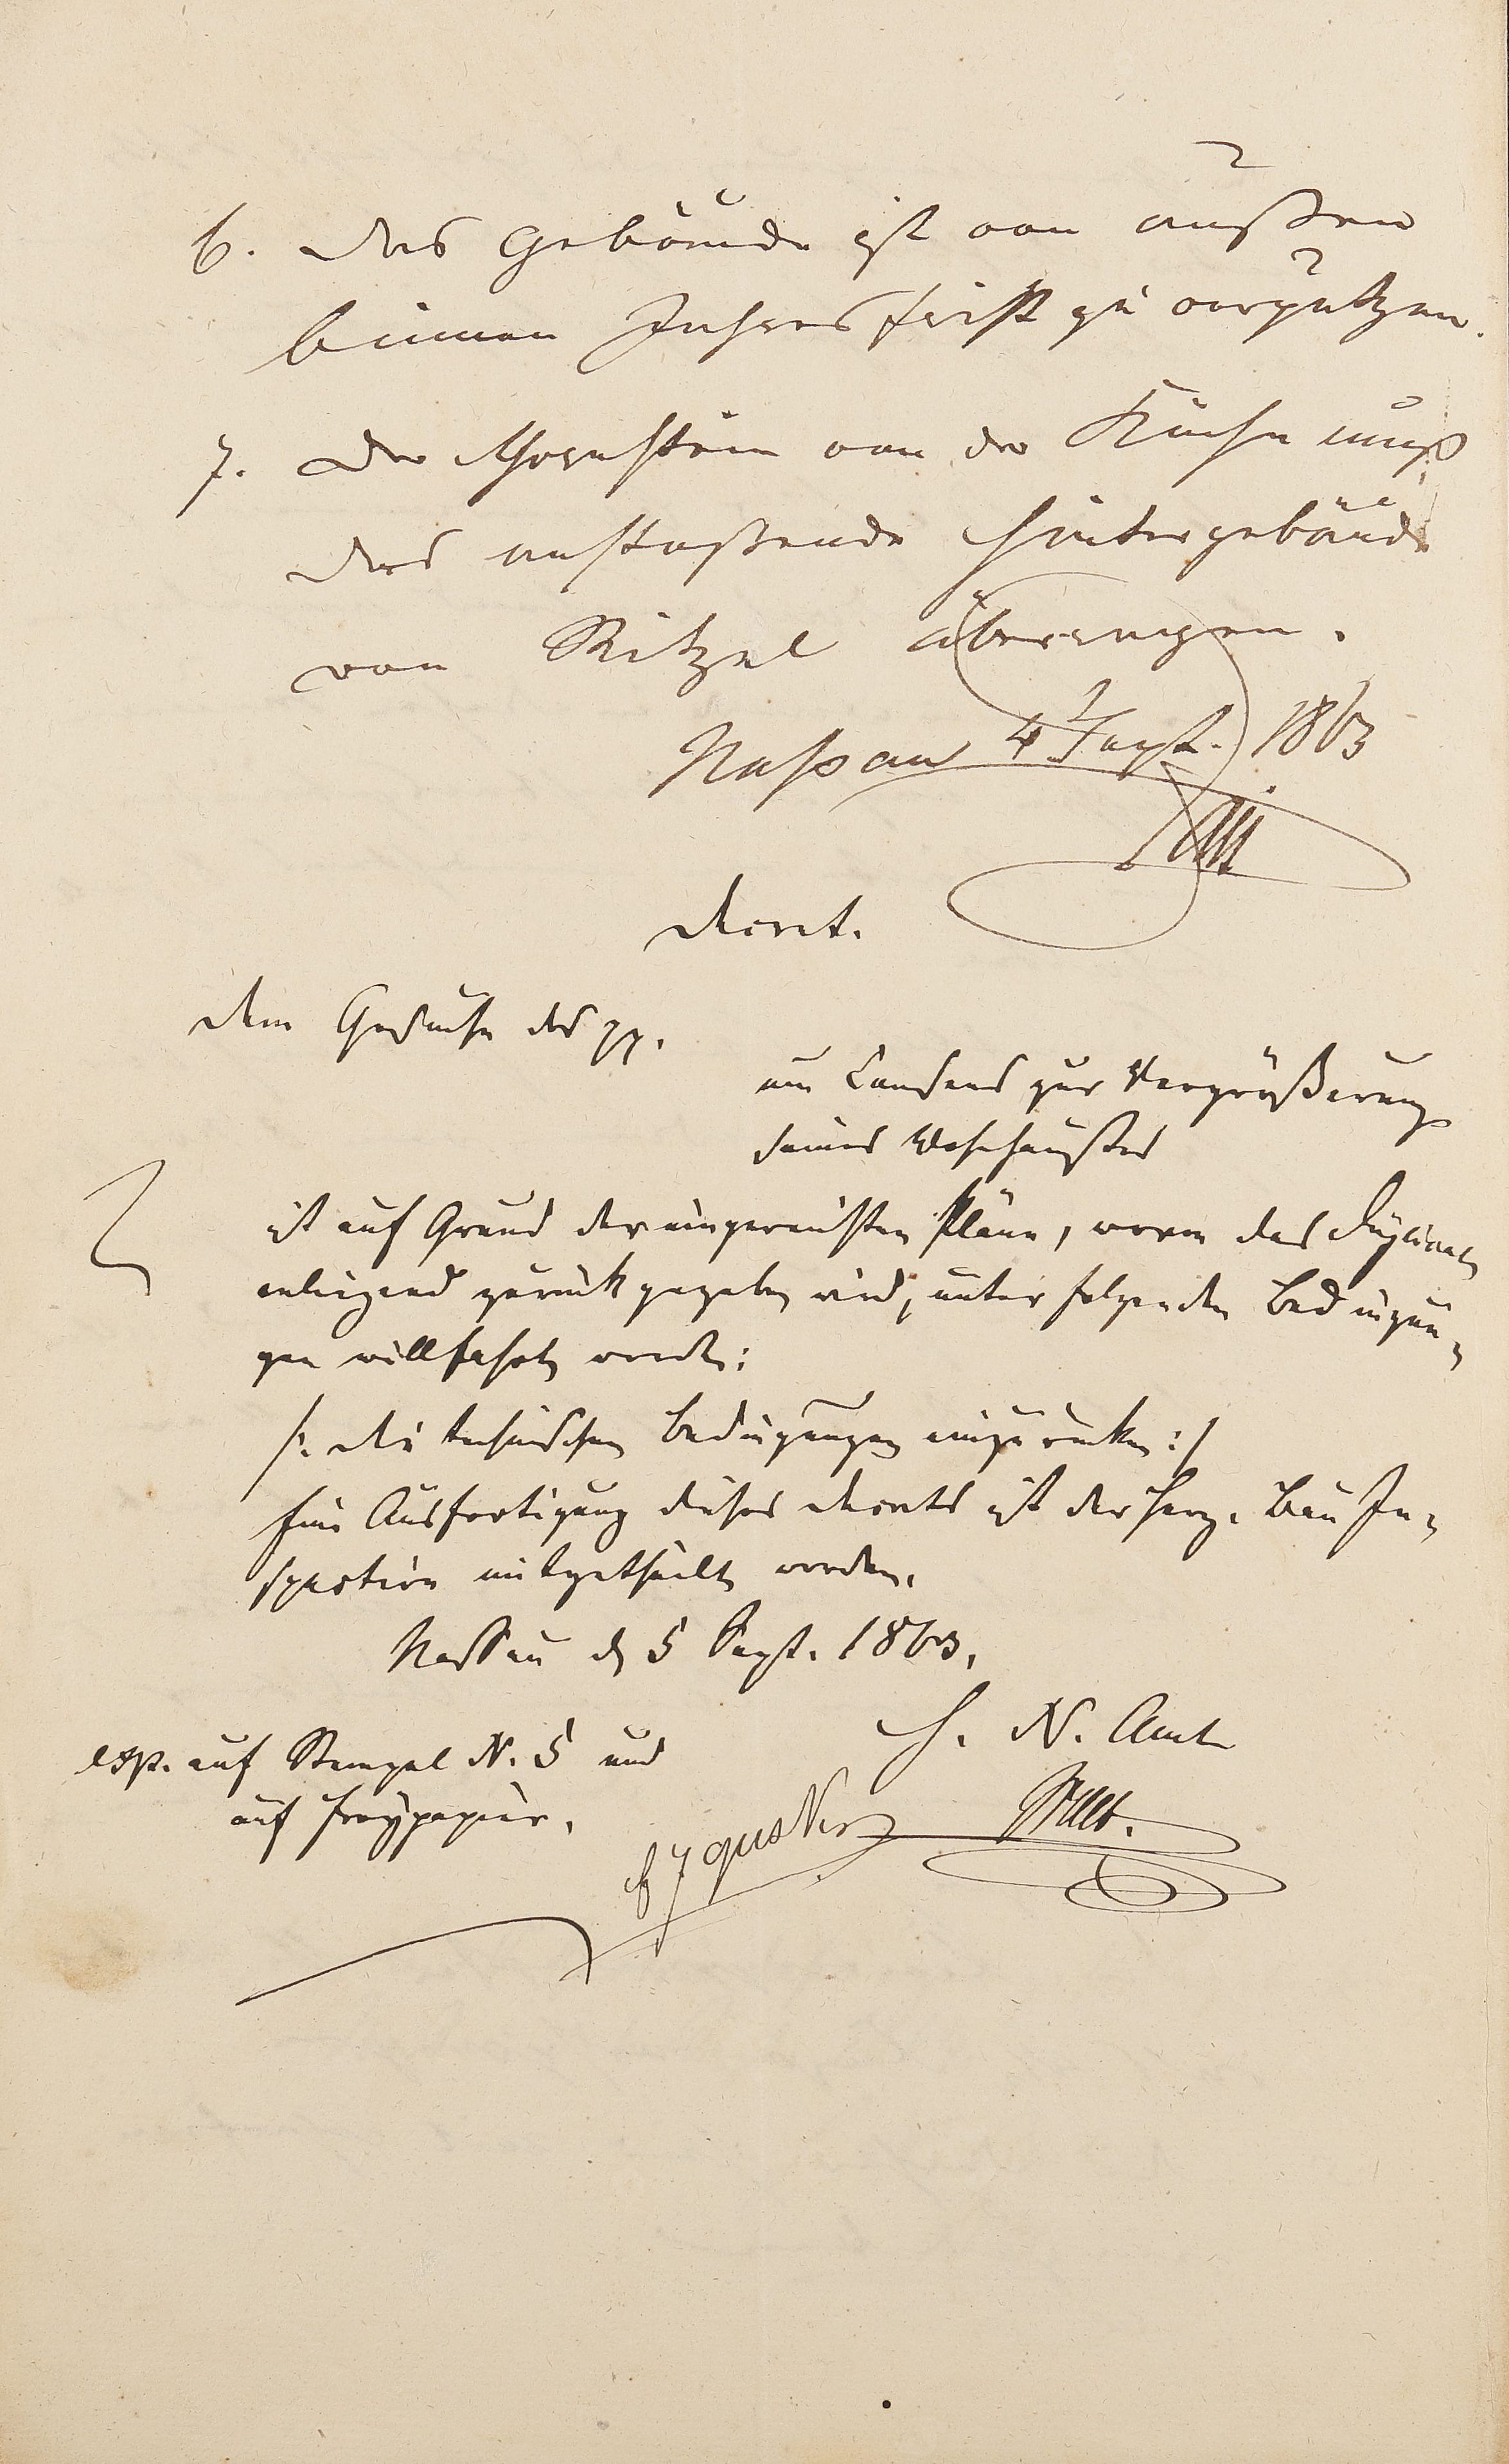 6. Das Gebäude ist von außen
binnen Jahresfrist zu verputzen.
7. Der Schornstein von der Küche muß
das anstoßende Hintergebäude
von Ritzel überragen.
Nassau 4 Sept. 1863
Decret.
Dem Gesuche des pp.
um Consens zur Vergrößerung
seines Wohnhauses
ist auf Grund der eingereichten Pläne, wovon das Duplicat
anliegend zurückgegeben wird, unter folgenden Bedingun-
gen willfahrt worden:
/: die technischen Bedingungen einzurücken :/
Eine Ausfertigung dieses Decrets ist der Herz. Bau In-
spection mitgetheilt worden.
Nassau d 5 Sept. 1863.
H. N. Amt
exp. auf Stempel N. 5 und
auf Freipapier.